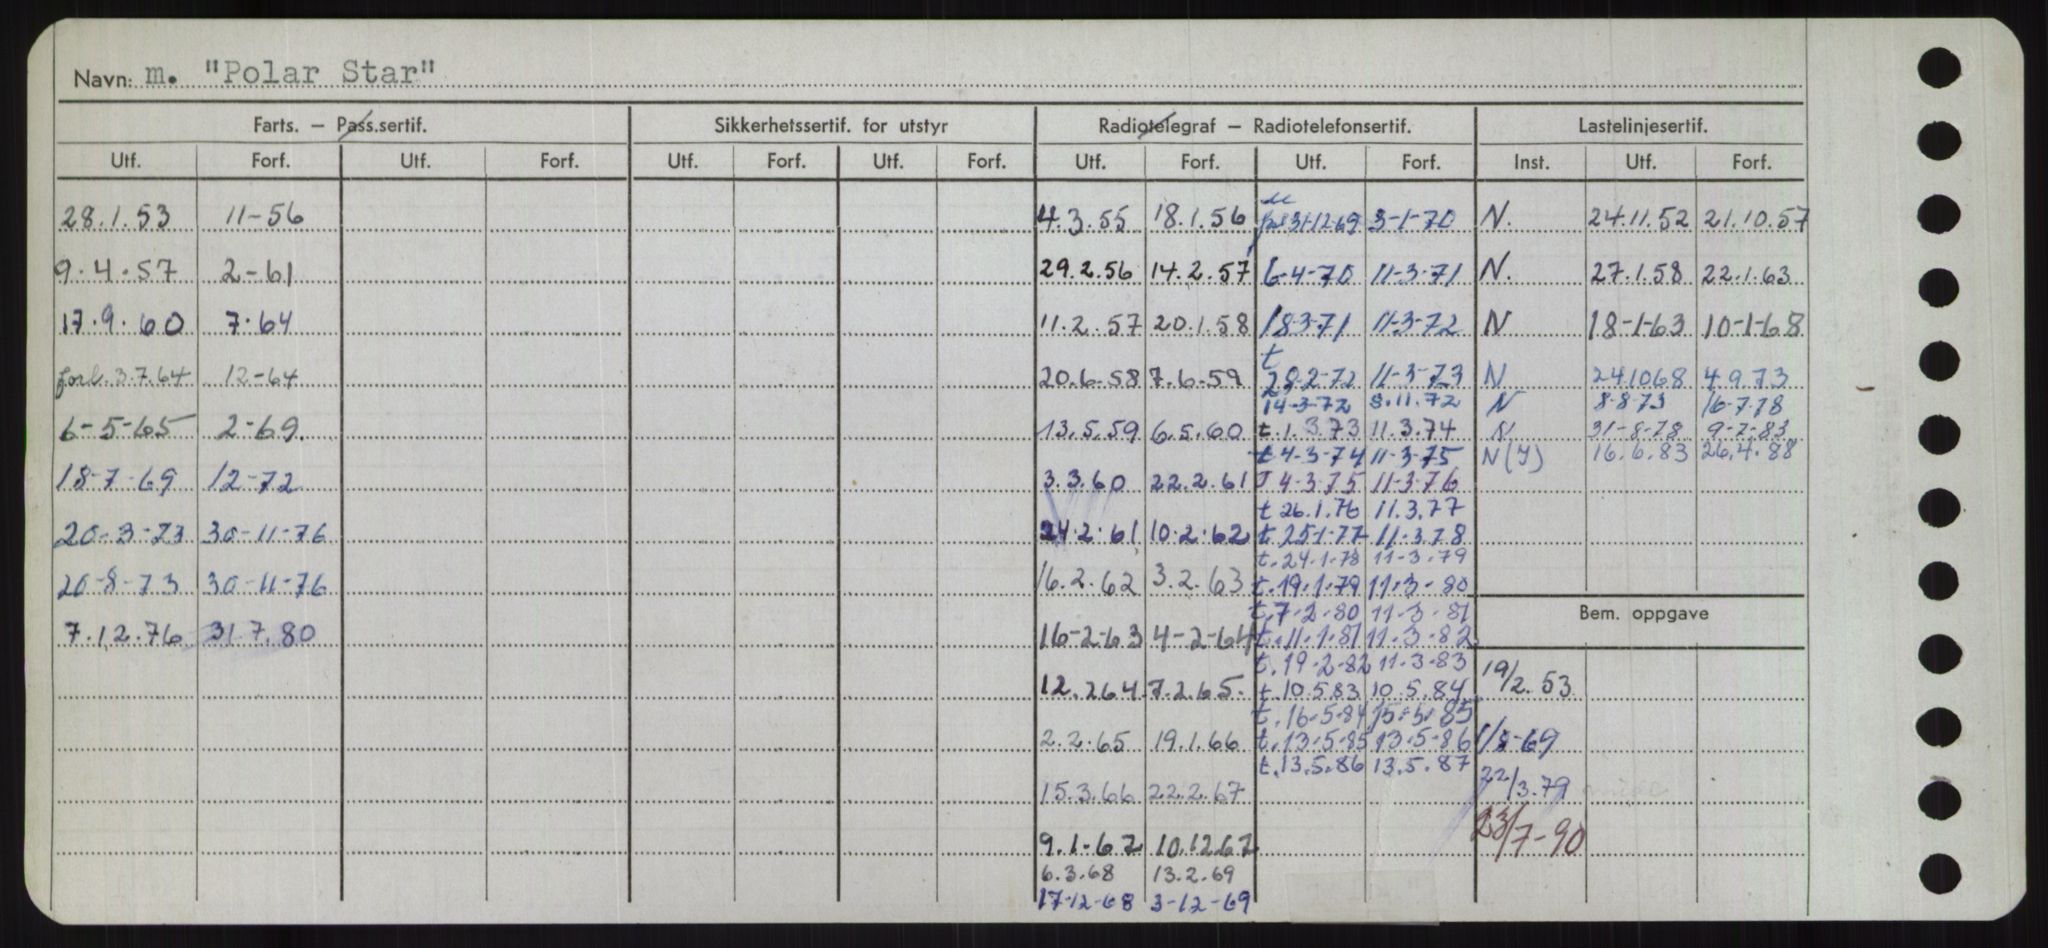 Navn: m. "Polar Star"
Farts. – Pass.sertif. Sikkerhetssertif. for utstyr Radiotelegraf – Radiotelefonsertif. Lastelinjesertif.
Utf. Forf. Utf. Forf. Utf. Forf. Utf. Forf. Utf. Forf. Utf. Forf. Inst. Utf. Forf.
28.1.53 11-56 4.3.55 18.1.56 31-12-69 3-1-70 N. 24.11.52 21.10.57
9.4.57 2-61 29.2.56 14.2.57 6-4-70 11-3-71 N. 27.1.58 22.1.63
17.9.60 7.64 11.2.57 20.1.58 18-3-71 11-3-72 N 18-1-63 10-1-68
forl. 3.7.64 12-64 20.6-58 7.6-59 t 28-2-72 11-3-73 N 24.10 68 4.9.73
14-3-72 8.11.72 N 8-8-73 16-7-78
6-5-65 2-69. 13.5.59 6.5.60 t.1.3.73 11.3.74 N 31-8-78 9-2-83
t 4-3-74 11-3-75 N(Y) 16.6.83 26.4.88
18-7-69 12-72 3.3.60 22.2.61 T 4-3-75 11-3-76
t 26.1.76 11.3.77
20-3-73 30-11-76 24.2.61 10.2.62 t.25-1-77 11-3.78
t.24-1-78 11-3-79
20-8-73 30-11-76 16.2.62 3.2.63 t.19.1.79 11.3-80
t.7-2-80 11-3-81
Bem. oppgave
7.12.76 31 7.80 16-2-63 4-2-64 t.11-1.81 11-3-82
t.19-2-82 11-3-83
12.2 64 7.2.65. t.10.5 83 10.5.84 19/2.53
t.16-5-84 15-5-85
2.2.65 19.1.66 t.13-5-85 13-5-86 1/8-69
t.13.5.86 13.5.87
15.3.66 22.2.67 22/3.79
9.1-67 10.12 67 23/7-90
6.3.68 13.2.69
17-12-68 3-12-69